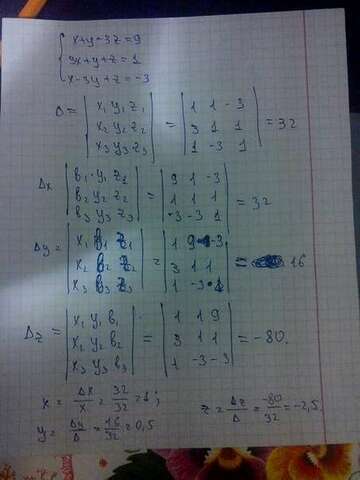 x+y-3z=9
3x+y+z=1
x-3y+z=-3
Δ= | x₁ y₁ z₁ | x₂ y₂ z₂ | x₃ y₃ z₃ | = | 1 1 -3 | 3 1 1 | 1 -3 1 | =32
Δx | в₁ y₁ z₁ | в₂ y₂ z₂ | в₃ y₃ z₃ | = | 9 1 -3 | 1 1 1 | -3 -3 1 | =32
Δy= | x₁ в₁ z₁ | x₂ в₂ z₂ | x₃ в₃ z₃ | = | 1 9 -3 | 3 1 1 | 1 -3 1 | = 16
Δz = | x₁ y₁ в₁ | x₂ y₂ в₂ | x₃ y₃ в₃ | = | 1 1 9 | 3 1 1 | 1 -3 -3 | = -80.
x = Δx/x = 32/32 = 1; z = Δz/Δ = -80/32 = -2,5.
y = Δy/Δ = 16/32 = 0,5